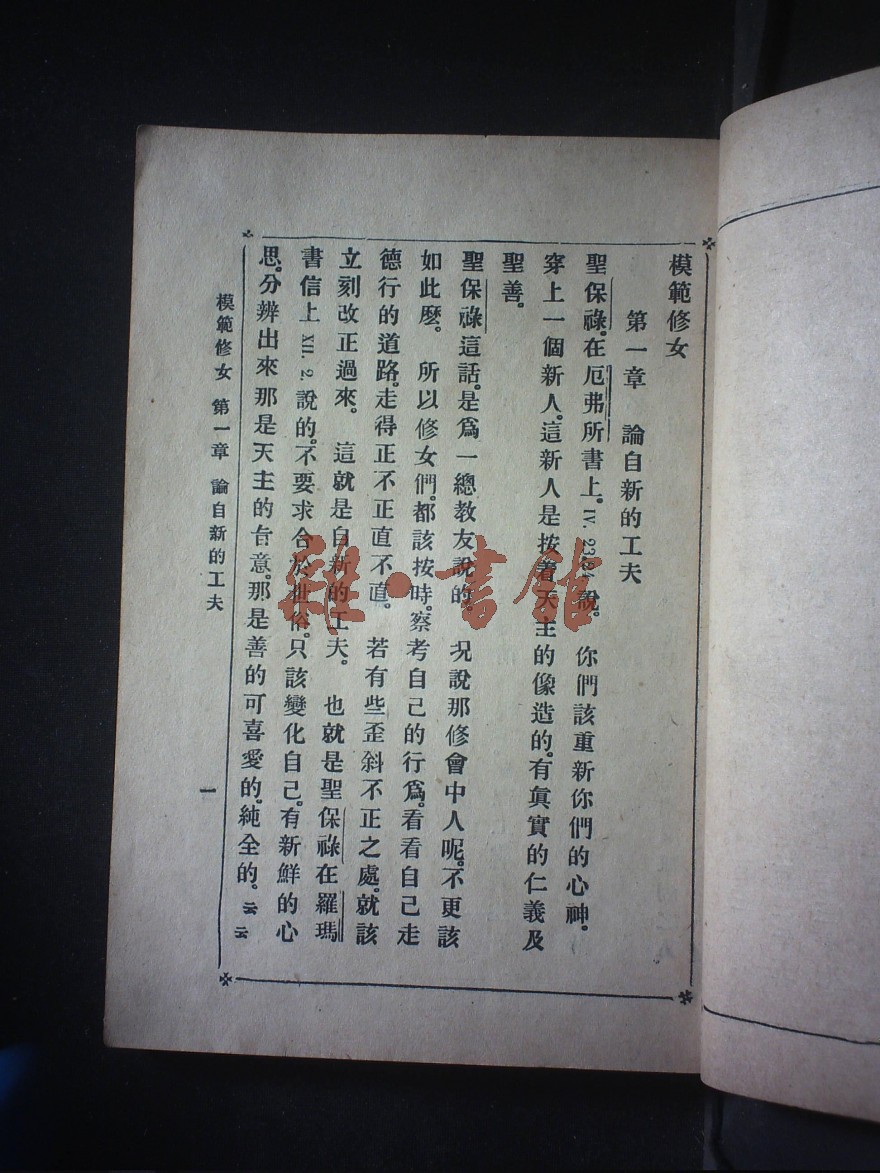 模範修女
第一章 論自新的工夫
聖保祿。在厄弗所書上。IV. 23.24 說。 你們該重新你們的心神。
穿上一個新人。這新人是按着天主的像造的。有眞實的仁義及
聖善。
聖保祿這話。是爲一總教友說的。 况說那修會中人呢。不更該
如此麽。 所以修女們。都該按時。察考自己的行爲。看看自己走
德行的道路。走得正不正直不直。 若有些歪斜不正之處。就該
立刻改正過來。 這就是自新的工夫。 也就是聖保祿在羅瑪
書信上 XII. 2. 說的。不要求合於世俗。只該變化自己。有新鮮的心
思。分辨出來那是天主的旨意。那是善的可喜愛的。純全的。云云
模範修女 第一章 論自新的工夫
一
雜·書館